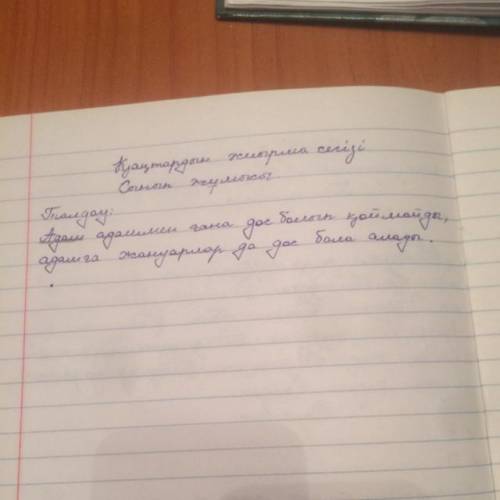 Қаңтардын жиырма сегізі
Сынып жұмысы
Талдау:
Адам адаммен ғана дос болып қоймайды,
адамға жануарлар да дос бола алады.